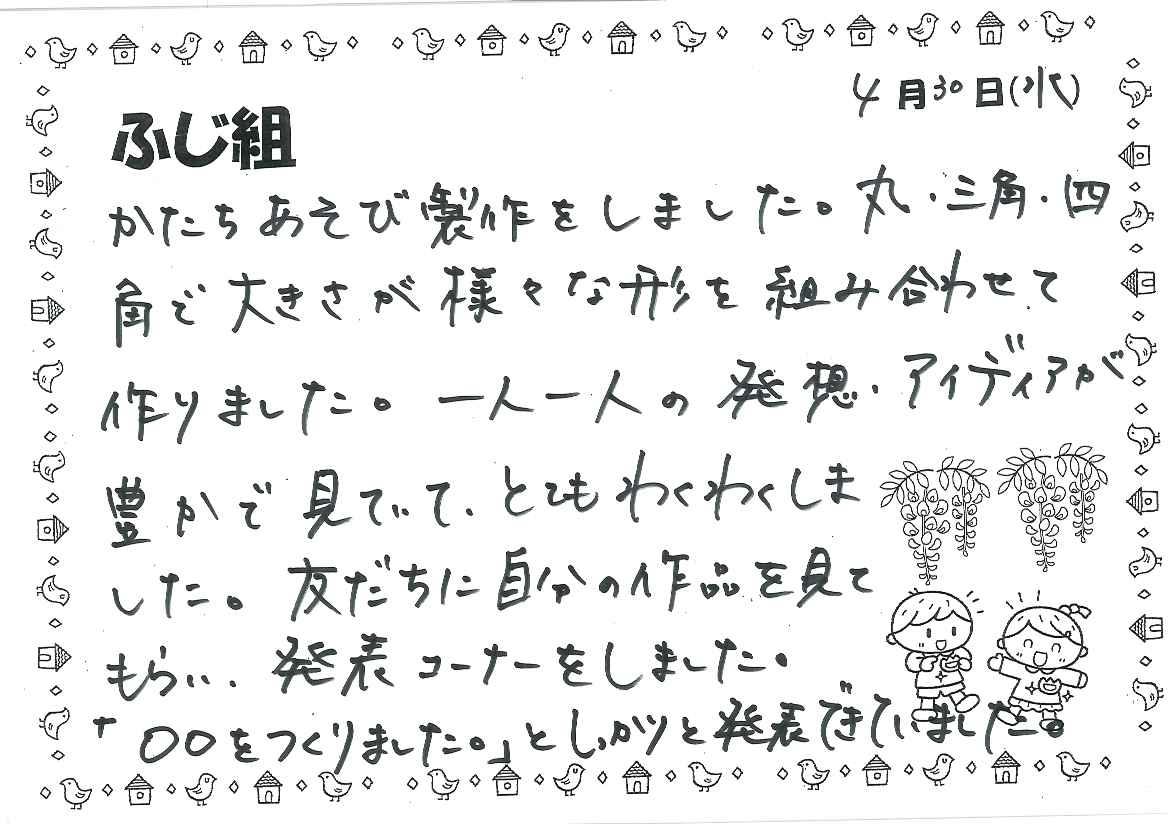 4月30日(水)
ふじ組
かたちあそび製作をしました。丸・三角・四
角で大きさが様々な形を組み合わせて
作りました。一人一人の発想・アイディアが
豊かで見ていて、とてもわくわくしま
した。友だちに自分の作品を見て
もらい、発表コーナーをしました。
「〇〇をつくりました。」としっかりと発表できていました。